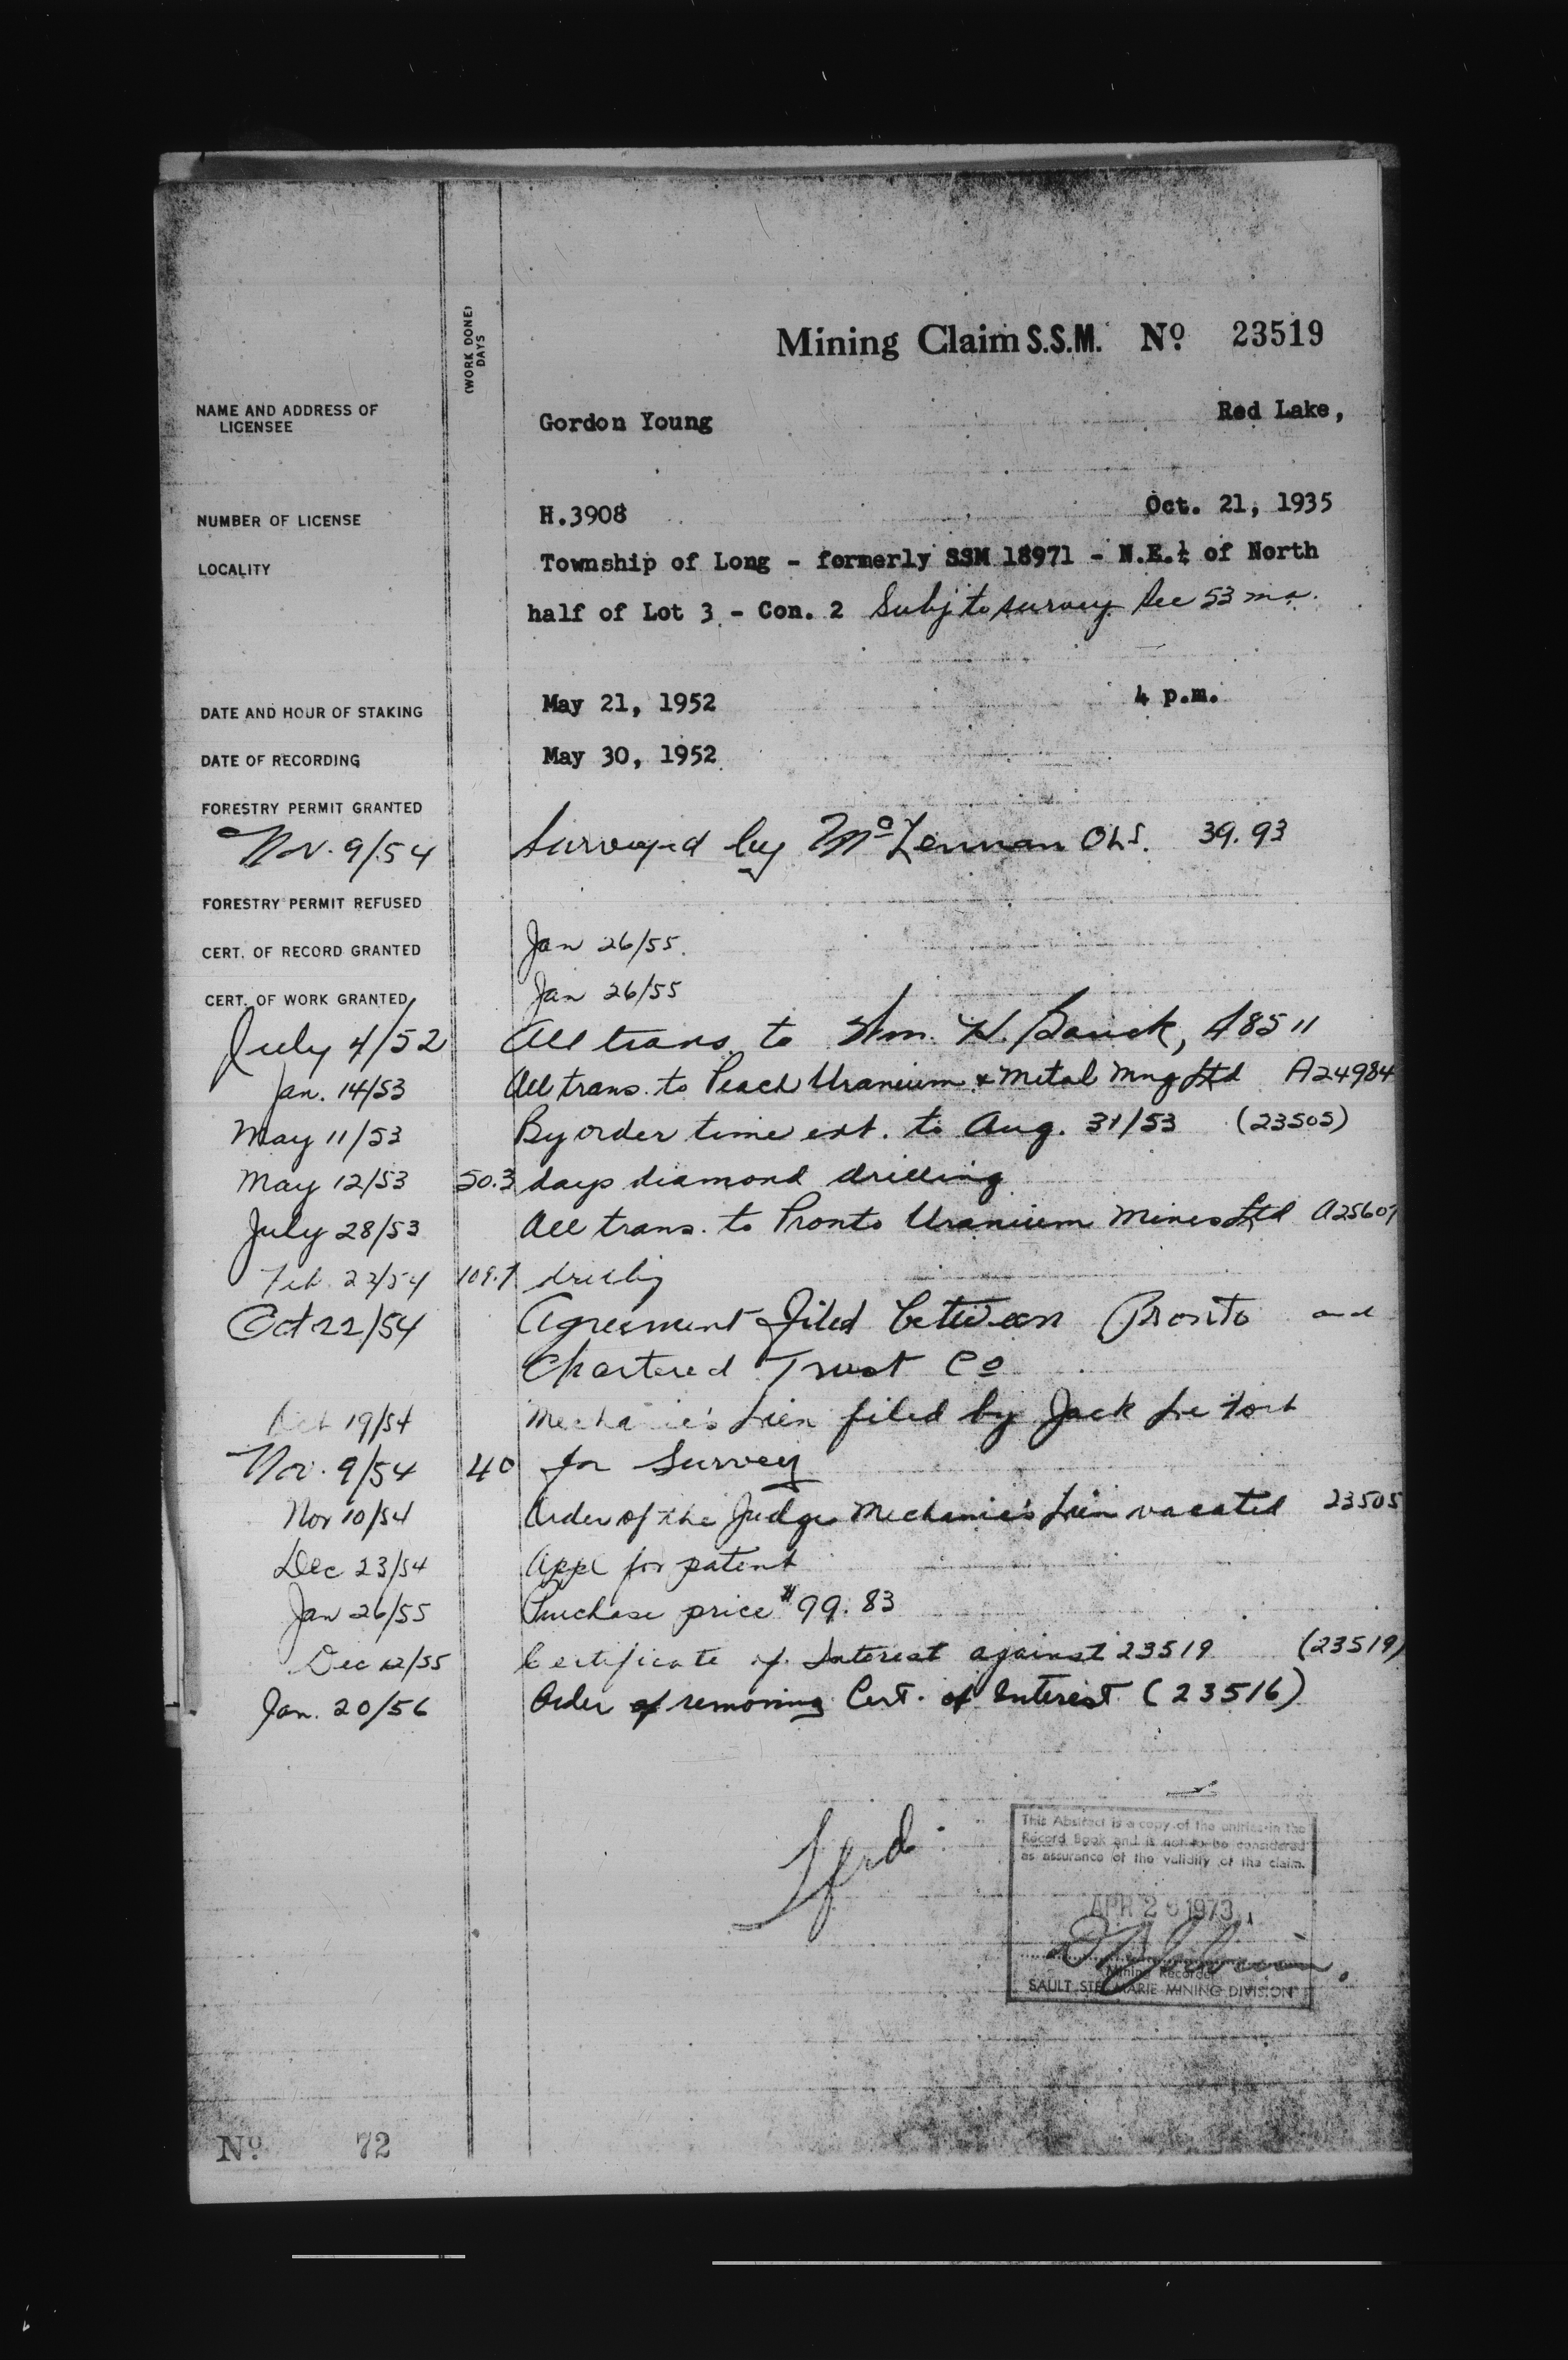 (WORK DONE)
DAYS
Mining Claim S.S.M. Nº 23519
NAME AND ADDRESS OF
LICENSEE
Gordon Young Red Lake,
NUMBER OF LICENSE H.3908 Oct. 21, 1935
LOCALITY Township of Long - formerly SSM 18971 - N.E.¼ of North
half of Lot 3 - Con. 2 Subj to survey Dec 53
DATE AND HOUR OF STAKING May 21, 1952 4 p.m.
DATE OF RECORDING May 30, 1952
FORESTRY PERMIT GRANTED
Nov. 9/54 Surveyed by McLennan OLS. 39.93
FORESTRY PERMIT REFUSED
CERT. OF RECORD GRANTED Jan 26/55.
CERT. OF WORK GRANTED Jan 26/55
July 4/52 All trans to Wm. H. A8511
Jan. 14/53 All trans. to Peach Uranium & Metal Mng Ltd A24984
May 11/53 By order time ext. to Aug. 31/53 (23505)
May 12/53 50.3 days diamond drilling
July 28/53 All trans. to Pronto Uranium Mines Ltd
Feb 22/54 109.7 drilling
Oct 22/54 Agreement filed between Pronto and
Chartered Trust Co
Oct 19/54 Mechanic's Lien filed by Jack
Nov. 9/54 40 for Survey
Nov 10/54 Order of the Judge Mechanic's Lien vacated 23505
Dec 23/54 Appl for patent
Jan 26/55 Purchase price $99.83
Dec 12/55 Certificate of Interest against 23519 (23519)
Jan. 20/56 Order of removing Cert. of Interest (23516)
This Abstract is a copy of the entries in the
Record Book and is not to be considered
as assurance of the validity of the claim.
APR 26 1973
Mining Recorder
SAULT STE. MARIE MINING DIVISION
Nº 72